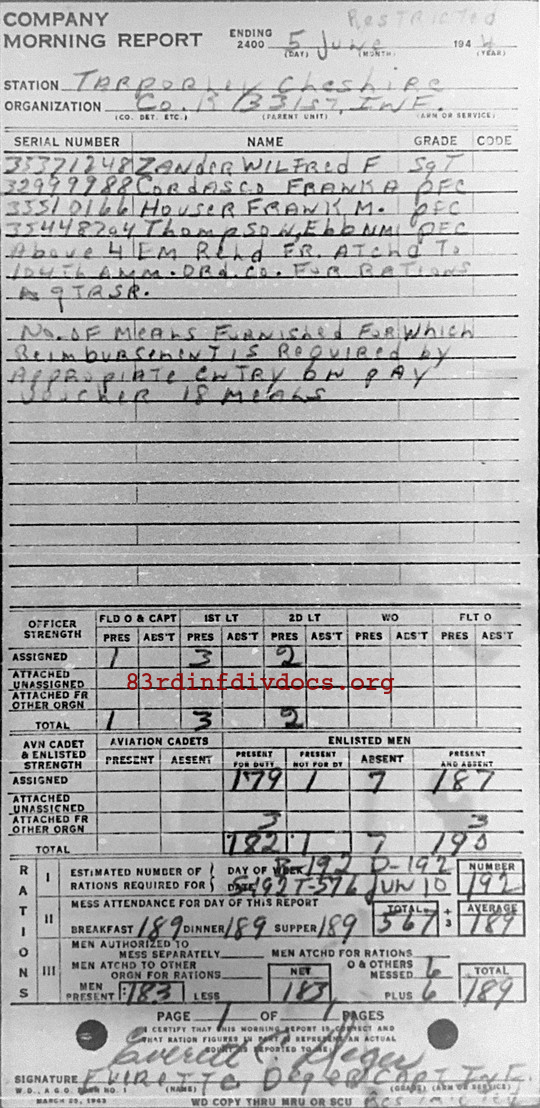 Restricted
COMPANY
MORNING REPORT ENDING 2400 5 June 194 4
(DAY) (MONTH) (YEAR)
STATION Tarporley Cheshire
ORGANIZATION Co. B 331st, INF.
(CO. DET. ETC.) (PARENT UNIT) (ARM OR SERVICE)
SERIAL NUMBER NAME GRADE CODE
35371248 ZANDER WILFRED F SgT
32999988 CORDASCO FRANK A PFC
33510166 HOUSER FRANK M. PFC
35448204 THOMPSON, Ebb NMI PFC
Above 4 EM Relid FR. ATchd To
104Th AMM. ORd. Co. FOR RATIONS
& qTRSR.
No. OF MEALS FURNIShed FOR Which
REIMbURSEMENT IS REQUIRED by
APPROPIATE ENTRY ON PAY
VOUCHER 18 MEALS
OFFICER STRENGTH FLD O & CAPT 1ST LT 2D LT WO FLT O
PRES ABS'T PRES ABS'T PRES ABS'T PRES ABS'T PRES ABS'T
ASSIGNED 1 3 2
ATTACHED UNASSIGNED
83rdinfdivdocs.org
ATTACHED FR OTHER ORGN
TOTAL 1 3 2
AVN CADET & ENLISTED STRENGTH AVIATION CADETS ENLISTED MEN
PRESENT ABSENT PRESENT FOR DUTY PRESENT NOT FOR DY ABSENT PRESENT AND ABSENT
ASSIGNED 179 1 7 187
ATTACHED UNASSIGNED
ATTACHED FR OTHER ORGN 3 3
TOTAL 182 1 7 190
RATIONS
I ESTIMATED NUMBER OF RATIONS REQUIRED FOR DAY OF WEEK B-192 D-192 NUMBER
DATE S-192 T-576 JUN 10 192
II MESS ATTENDANCE FOR DAY OF THIS REPORT TOTAL AVERAGE
BREAKFAST 189 DINNER 189 SUPPER 189 567 ÷ 3 189
III MEN AUTHORIZED TO MESS SEPARATELY MEN ATCHD FOR RATIONS
MEN ATCHD TO OTHER ORGN FOR RATIONS NET O & OTHERS MESSED 6 TOTAL
MEN PRESENT 183 LESS 183 PLUS 6 189
PAGE 1 OF 1 PAGES
I CERTIFY THAT THIS MORNING REPORT IS CORRECT AND
THAT RATION FIGURES IN PART II REPRESENT AN ACTUAL
COUNT AS REPORTED TO ME
SIGNATURE CAPT INF.
W.D., A.G.O. FORM NO. 1 (NAME) (GRADE) (ARM OR SERVICE)
MARCH 20, 1943 WD COPY THRU MRU OR SCU Restricted